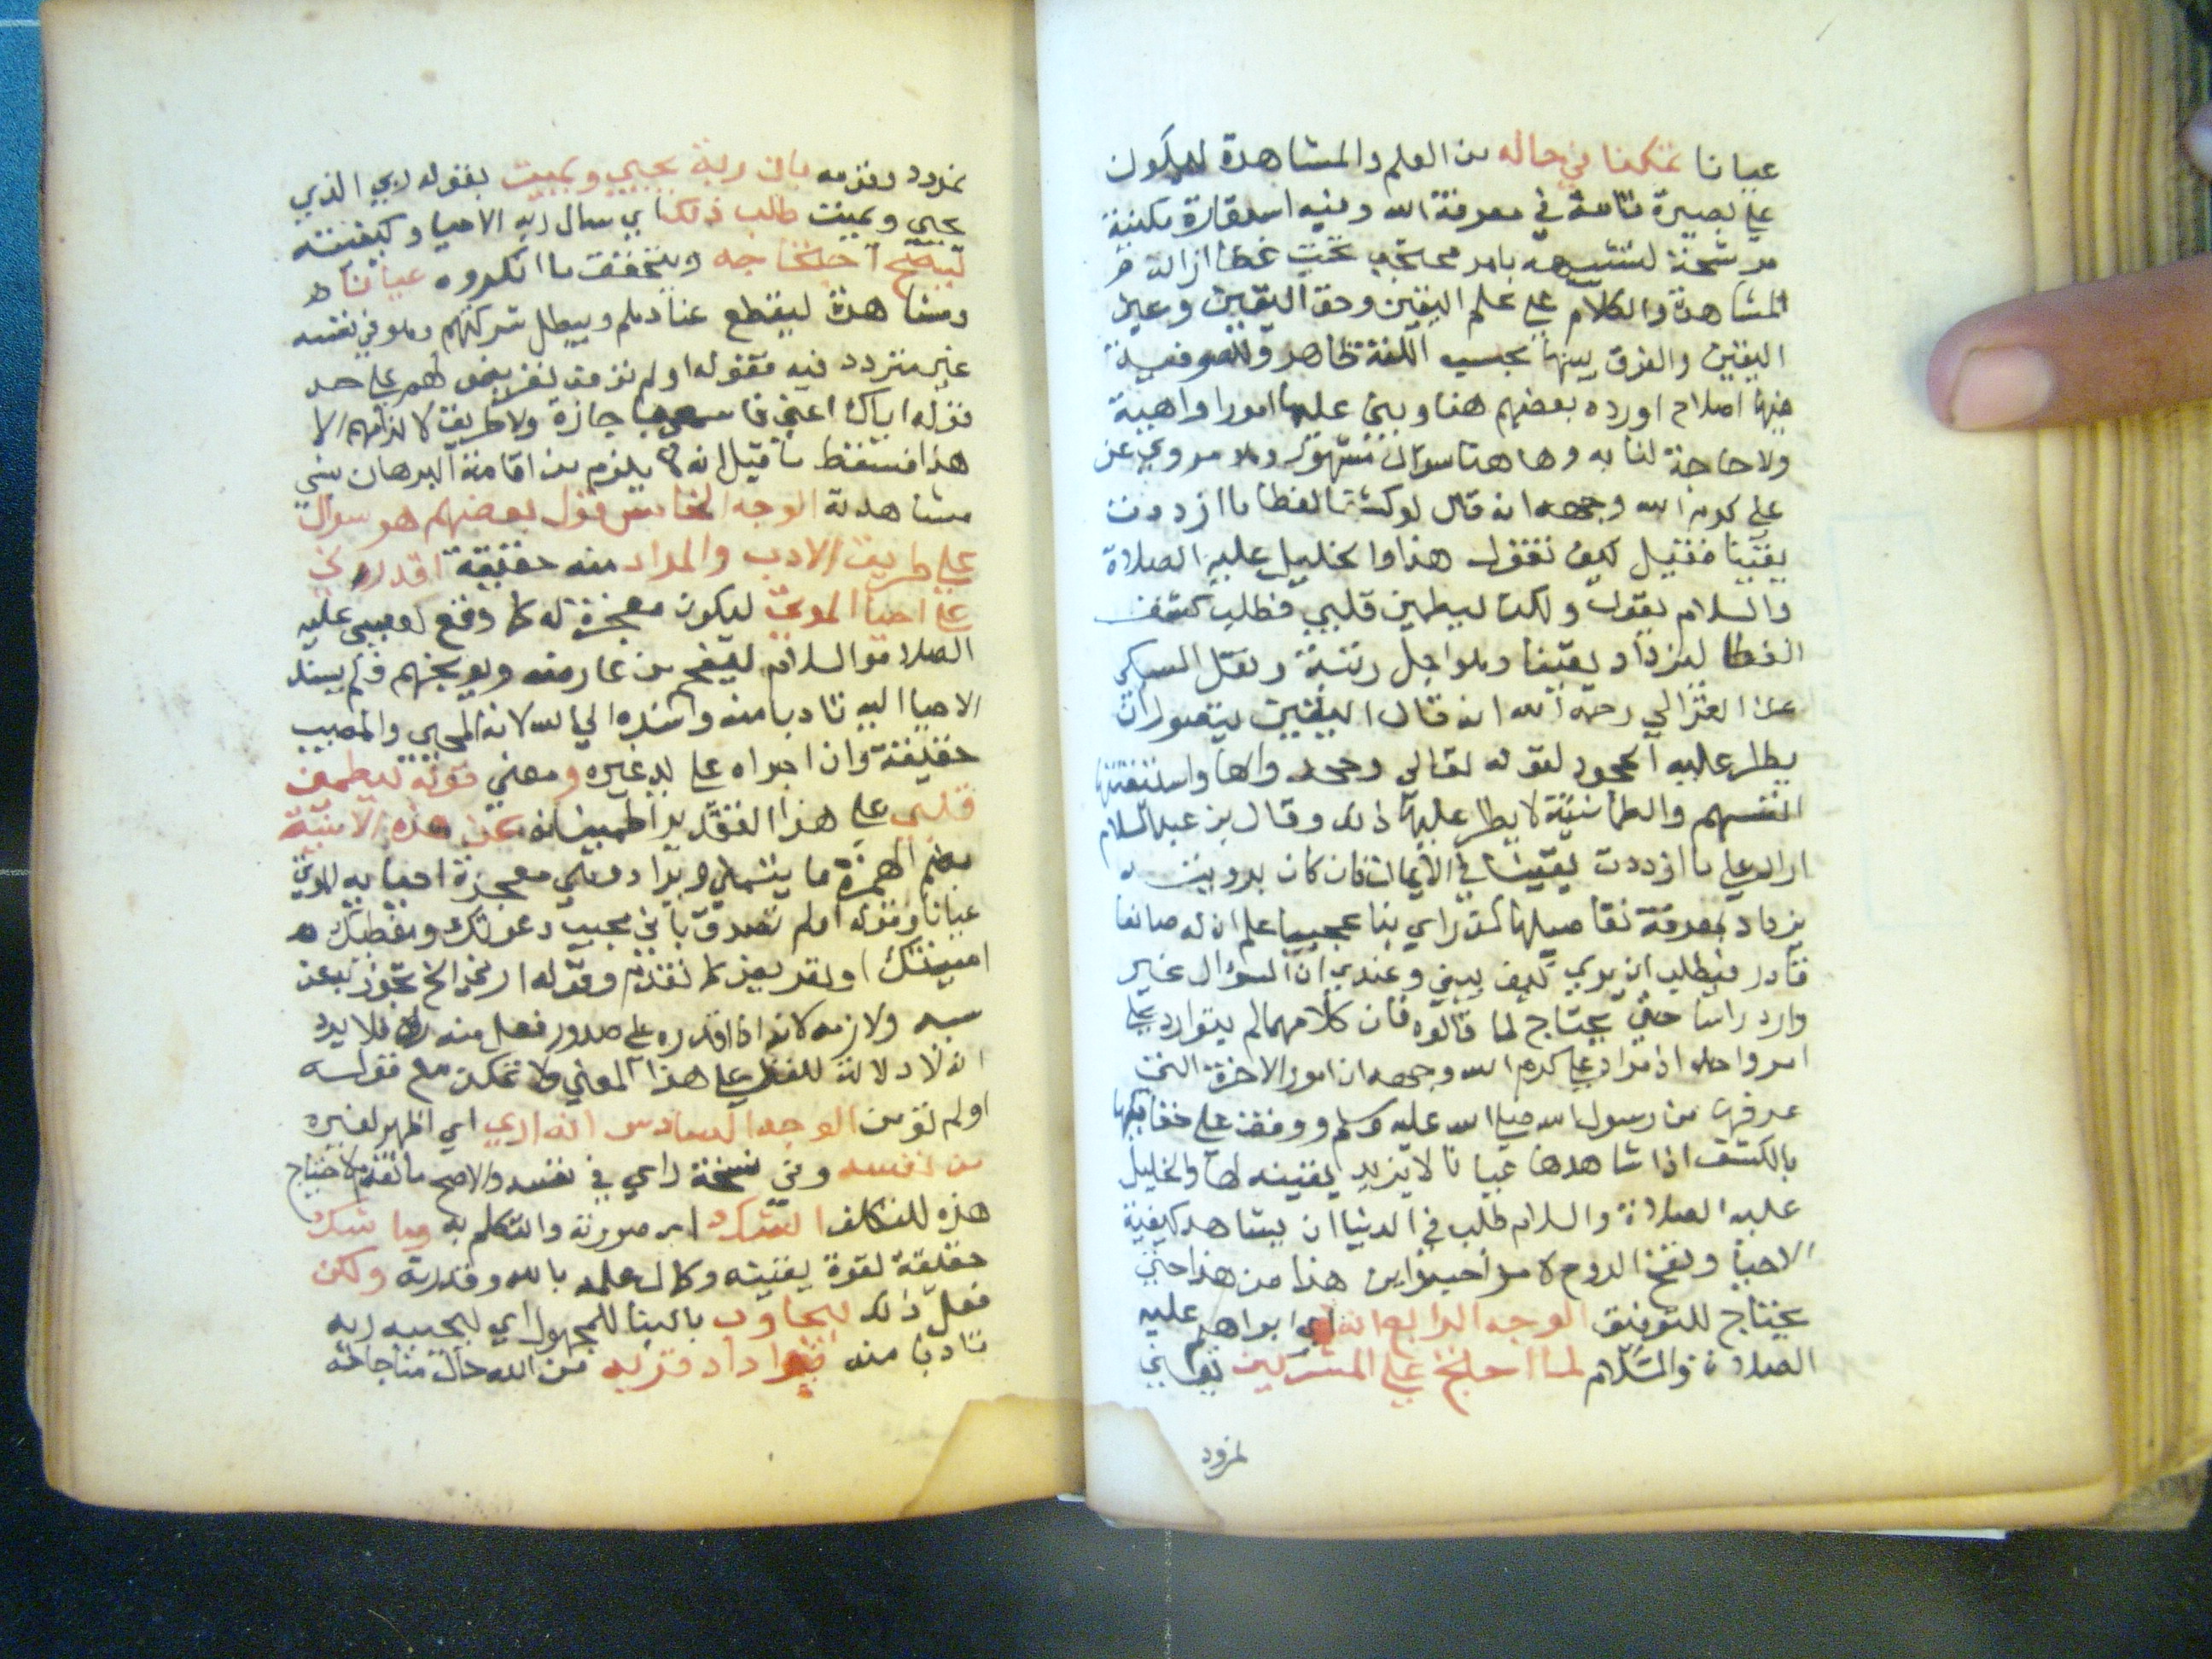 عيانا تمكنا في حاله من العلم والمشاهدة ليكون
علي بصيرة تامة في معرفة الله وفيه استعارة مكنية
مرشحة لتشبيهه بامر محتجب تحت غطا ازالته
المشاهدة والكلام علي علم اليقين وحق اليقين وعين
اليقين والفرق بينها بحسب اللغة ظاهر وللصوفية
فيها اصلاح اورده بعضهم هنا وبني عليها امورا واهية
ولا حاجة لنا به وهاهنا سوال مشهور وهو مروي عن
علي كرم الله وجهه انه قال لو كشف الغطا ما ازددت
يقينا فقيل كيف نقول هذا والخليل عليه الصلاة
والسلام يقول ولكن ليطمين قلبي فطلب كشف
الغطا ليزداد يقينا وهو اجل رتبة ونقل السبكي
عن الغزالي رحمه الله انه قال اليقين يتصور ان
يطرا عليه الجحود لقوله تعالي وجحدوا بها واستيقنتها
انفسهم والطمانينة لا يطرا عليها ذلك وقال بن عبد السلام
اراد علي ما ازددت يقينا في الايمان فان كان برويته
يزداد بمعرفة تفاصيلها كمن راي بنا عجيبا علم ان له صانعا
قادر فيطلب ان يري كيف يبني وعندي ان السؤال غير
وارد راسا حتي يحتاج لما قالوه فان كلامهما لم يتوارد علي
امر واحد اذ مراد علي كرم الله وجهه ان امور الاخرة التي
عرفها من رسول الله صلي الله عليه وسلم ووقف علي حقايقها
بالكشف اذا شاهدها عيانا لا يزيد يقينه بها والخليل
عليه الصلاة والسلام طلب في الدنيا ان يشاهد كيفية
الاحيا ونفخ الروح لامر احب فاين هذا من هذا حتي
يحتاج للتوفيق الوجه الرابع انه اي ابراهيم عليه
الصلاة والسلام لما احتج علي المشركين يعني
نمرود
نمرود وقومه بان ربه يحيي ويميت بقوله ربي الذي
يحيي ويميت طلب ذلك اي سال ربه الاحيا وكيفيته
ليصح احتجاجه ويتحقق ما انكروه عيانا
ومشاهدة لينقطع عنادهم ويبطل شركتهم وهو في نفسه
غير متردد فيه فقوله اولم تومن تعريض لهم علي حد
قوله اياك اعني فاسمعي يا جارة ولا طريق لالزامهم الا
هذا فسقط ما قيل انه لا يلزم من اقامة البرهان بشي
مشاهدته الوجه الخامس قول بعضهم هو سوال
علي طريق الادب والمراد منه حقيقة اقدرني
علي احيا الموتي ليكون معجزة له كما وقع لعيسي عليه
الصلاة والسلام ليفحم من عارضه ويعجزهم ولم يسند
الاحيا اليه تادبا منه واسنده الي الله لانه المحيي والمميت
حقيقة وان اجراه علي يد غيره ومعني قوله ليطمين
قلبي علي هذا التقدير اطمينانه عن هذه الامنية
بضم الهمزة ما يتمني ويراد وهي معجزة احيا به الموتي
عيانا وقوله اولم تصدق باني مجيب دعوتك ومعطيك
امنيتك او تقرير كما تقدم وقوله ارني الخ تجوز به عن
سببه ولازمه لانه اذا اقدره علي صدور فعل منه فلا يرد
انه لا دلالة للفظ علي هذا المعني ولا تمكن مع قوله
اولم تومن الوجه السادس انه اري اي اظهر لغيره
من نفسه وفي نسخة راي في نفسه والاصح ما تقدم لاحتياج
هذه للتكلف الشك اي صورته والتكلم به وما شك
حقيقة لقوة يقينه وكمال علمه بالله وقدرته ولكن
فعل ذلك ليجاوب بالبنا للمجهول اي ليجيبه ربه
تادبا منه فيزداد قربه من الله حال مناجاته